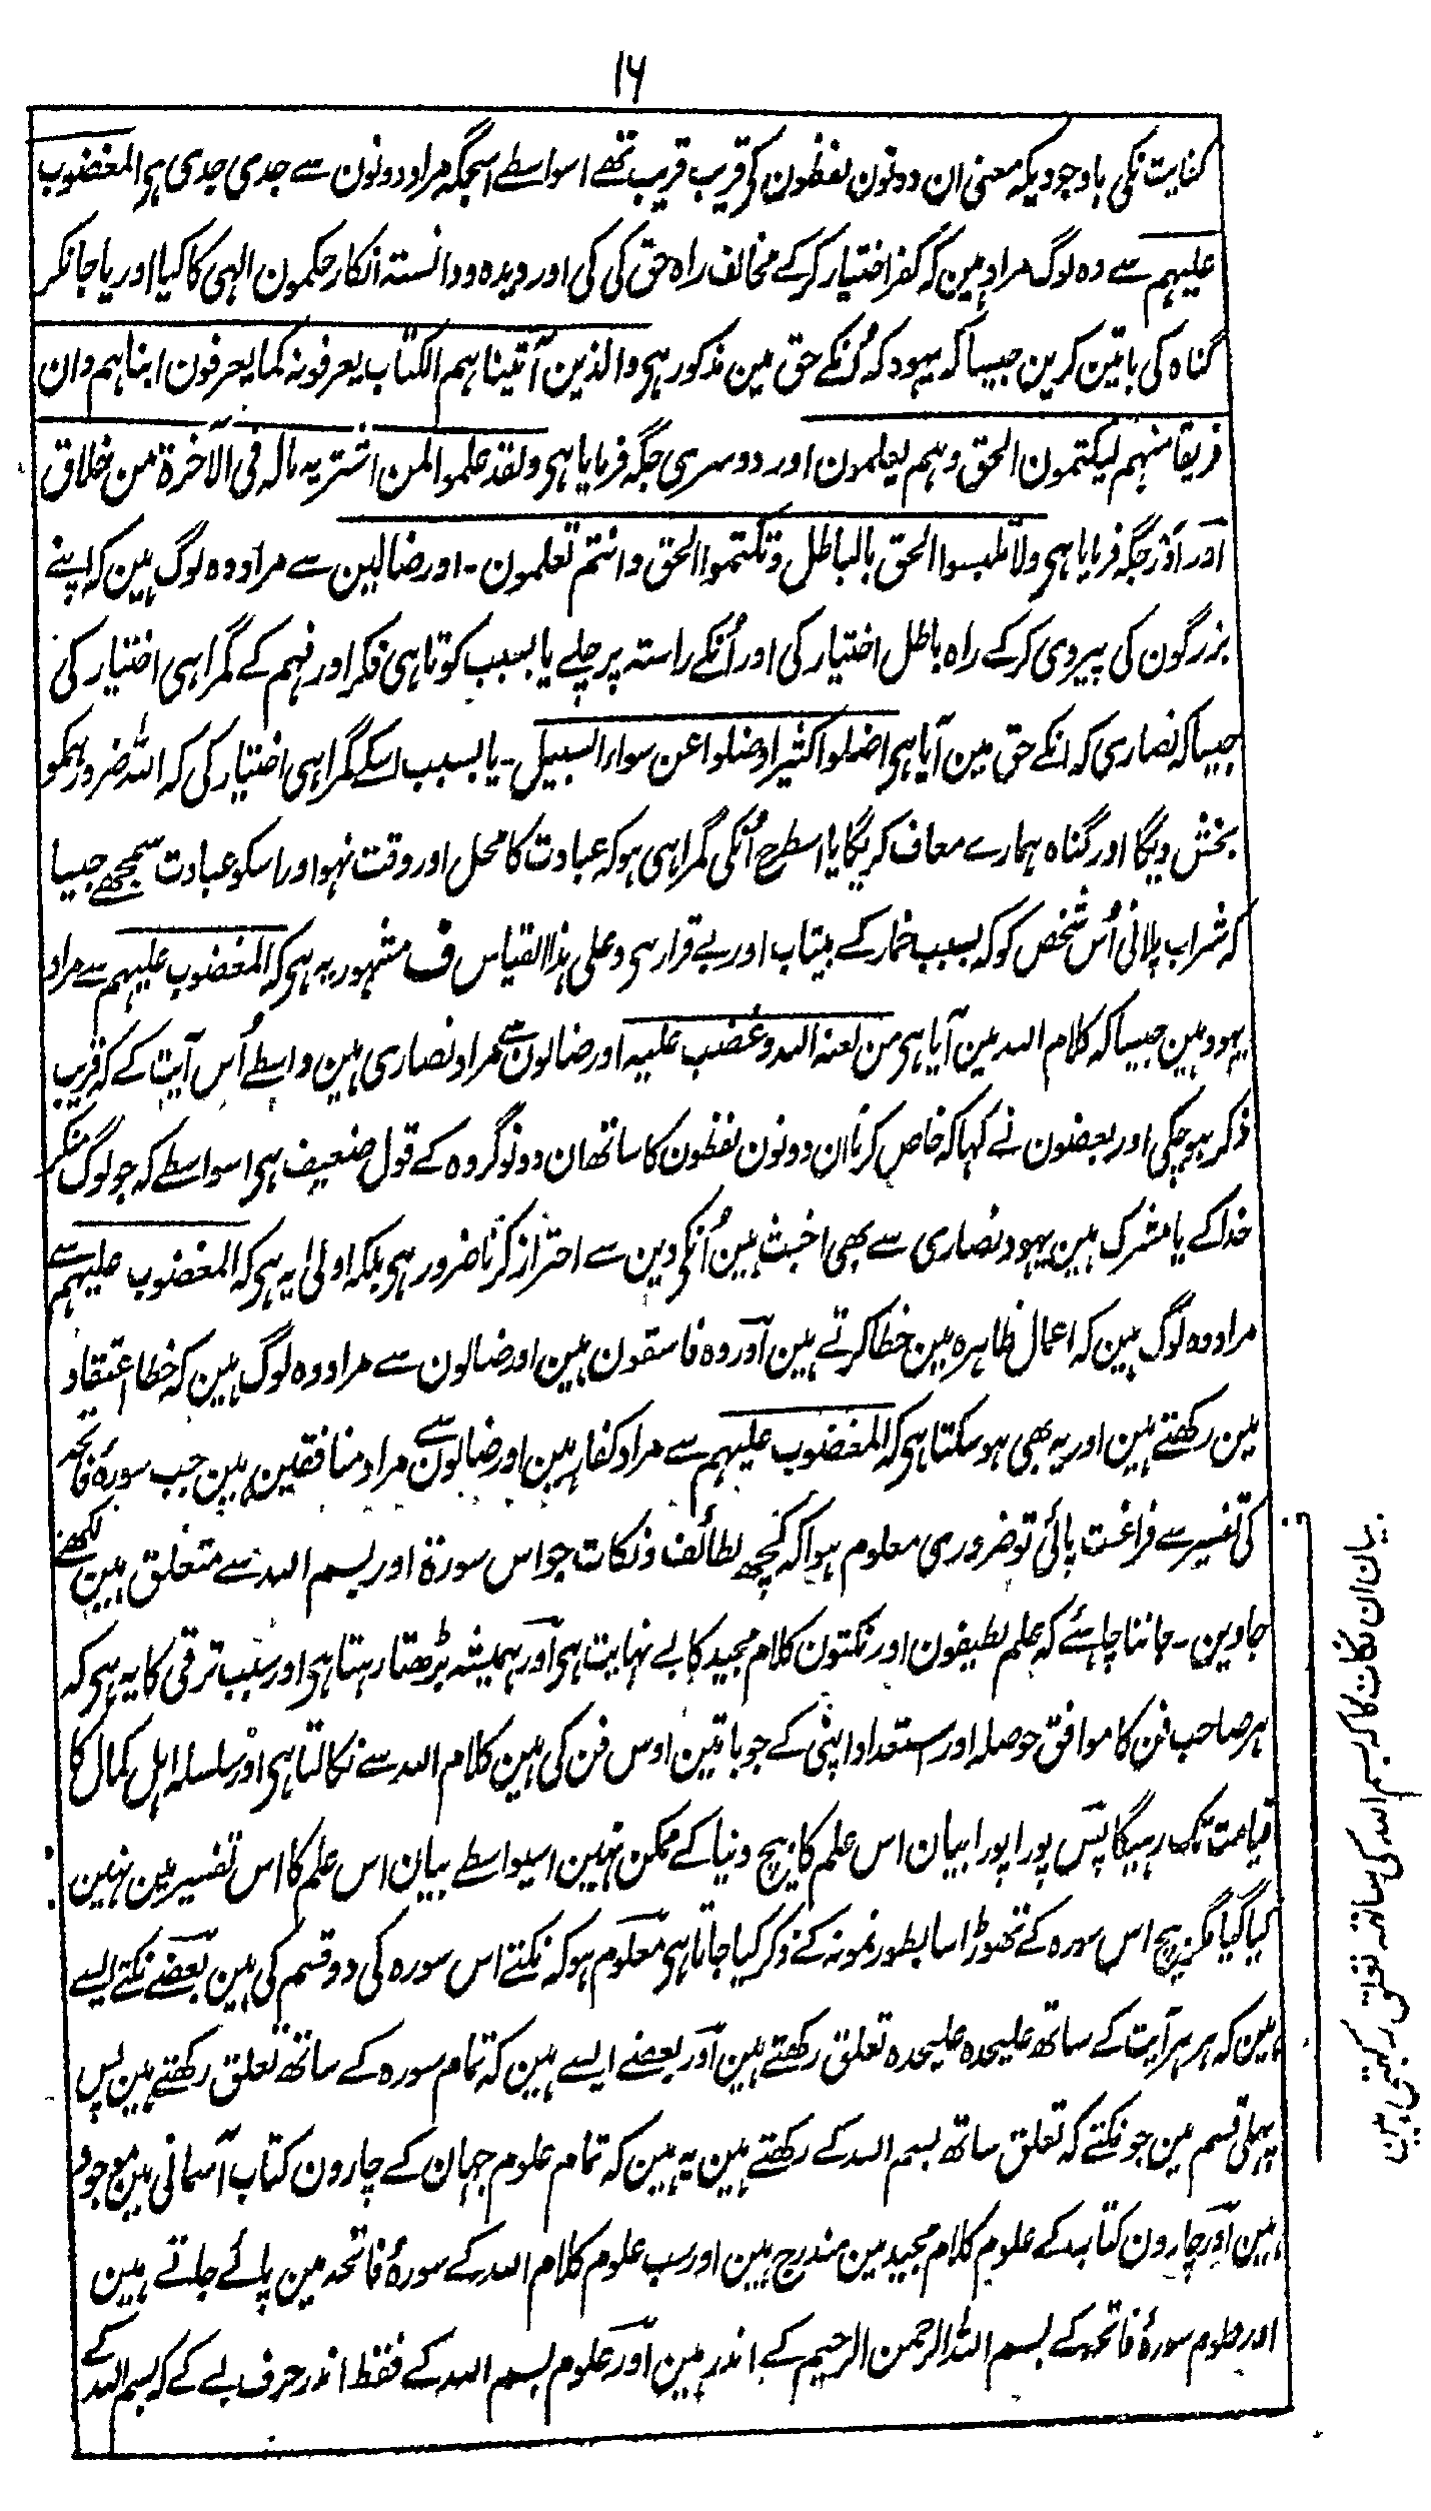 ۱۶
کنایت نکی باوجودیکہ معنی ان دونون لفظون کی قریب قریب تھے اسواسطے اسجگہ مراد دونون سے جدی جدی ہی المغضوب
علیہم سے وہ لوگ مراد ہین کہ کفر اختیار کرکے مخالف راہ حق کی کی اور دیدہ و دانستہ انکار حکمون الہی کا کیا اور یا جانکر
گناہ کی باتین کرین جیسا کہ یہود کہ اُنکے حق مین مذکور ہی والذین آتیناہم الکتاب یعرفونہ کما یعرفون ابناہم وان
فریقا منہم لیکتمون الحق وہم یعلمون اور دوسری جگہ فرمایا ہی ولقد علموا لمن اشتریہ مالہ فی الآخرۃ من خلاق
اور اَوْر جگہ فرمایا ہی ولا تلبسوا الحق بالباطل وتکتموا الحق وانتم تعلمون - اور ضالین سے مراد وہ لوگ ہین کہ اپنے
بزرگون کی پیروی کرکے راہ باطل اختیار کی اور اُنکے راستہ پر چلے یا بسبب کوتاہی فکر اور فہم کے گمراہی اختیار کی
جیسا کہ نصاری کہ انکے حق مین آیا ہی اضلوا کثیرا وضلوا عن سواء السبیل - یا بسبب اسکے گمراہی اختیار کی کہ اللہ ضرور ہمکو
بخش دیگا اور گناہ ہمارے معاف کریگا یا اسطرح اُنکی گمراہی ہو کہ عبادت کا محل اور وقت نہو اور اسکو عبادت سمجھے جیسا
کہ شراب پلانی اُس شخص کو کہ بسبب خمار کے بیتاب اور بے قرار ہی وعلی ہذا القیاس ف مشہور یہ ہی کہ المغضوب علیہم سے مراد
یہود ہین جیسا کہ کلام اللہ مین آیا ہی من لعنہ اللہ وغضب علیہ اور ضالون سے مراد نصاری ہین واسطے اُس آیت کے کہ قریب
ذکر ہو چکی اور بعضون نے کہا کہ خاص کرنا ان دونون لفظون کا ساتھ ان دونو گروہ کے قول ضعیف ہی اسواسطے کہ جو لوگ منکر
خدا کے یا مشرک ہین یہود نصاری سے بھی اخبث ہین اُنکی دین سے احتراز کرنا ضرور ہی بلکہ اولی یہ ہی کہ المغضوب علیہم سے
مراد وہ لوگ ہین کہ اعمال ظاہرہ مین خطا کرتے ہین اور وہ فاسقون ہین اور ضالون سے مراد وہ لوگ ہین کہ خطا اعتقاد
مین رکھتے ہین اور یہ بھی ہو سکتا ہی کہ المغضوب علیہم سے مراد کفار ہین اور ضالون سے مراد منافقین ہین جب سورۂ فاتحہ
کی تفسیر سے فراغت پائی تو ضروری معلوم ہوا کہ کچھ لطائف و نکات جو اس سورۃ اور بسم اللہ سے متعلق ہین لکھے
جاوین - جاننا چاہئے کہ علم لطیفون اور نکتون کلام مجید کا بے نہایت ہی اور ہمیشہ بڑھتا رہتا ہی اور سبب ترقی کا یہ ہی کہ
ہر صاحب فن کا موافق حوصلہ اور استعداد اپنی کے جو باتین اوس فن کی ہین کلام اللہ سے نکالتا ہی اور سلسلہ اہل کمال کا
قیامت تک رہیگا پس پورا پورا بیان اس علم کا بیچ دنیا کے ممکن نہین اسیواسطے بیان اس علم کا اس تفسیر مین نہین
کیا گیا مگر بیچ اس سورہ کے تھوڑا سا بطور نمونہ کے ذکر کیا جاتا ہی معلوم ہو کہ نکتے اس سورہ کی دو قسم کی ہین بعضے نکتے ایسے
ہین کہ ہر ہر آیت کے ساتھ علیحدہ علیحدہ تعلق رکھتے ہین اور بعضے ایسے ہین کہ تمام سورہ کے ساتھ تعلق رکھتے ہین پس
پہلی قسم مین جو نکتے کہ تعلق ساتھ بسم اللہ کے رکھتے ہین یہ ہین کہ تمام علوم جہان کے چارون کتاب آسمانی مین موجود
ہین اور چارون کتاب کے علوم کلام مجید مین مندرج ہین اور سب علوم کلام اللہ کے سورۂ فاتحہ مین پائے جاتے ہین
اور علوم سورۂ فاتحہ کے بسم اللہ الرحمن الرحیم کے اندر ہین اور علوم بسم اللہ کے فقط اندر حرف بے کے کہ بسم اللہ کے
بیان ان نکات کا کہ بسم اللہ کی ساتھ تعلق رکھتی ہین